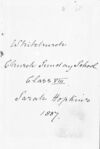 Whitchurch
Church Sunday School
Class VIII
Sarah Hopkins
1887.